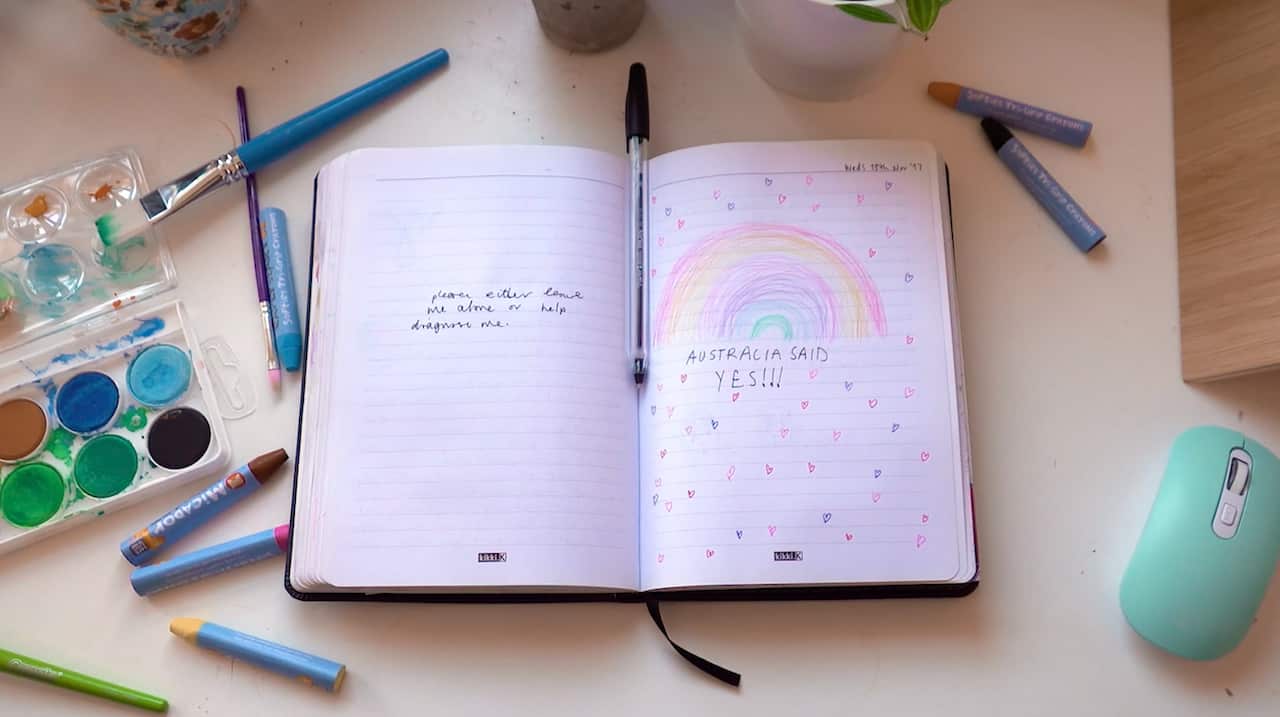 please either leave
me alone or help
diagnose me.
Weds 15th Nov '17
AUSTRALIA SAID
YES!!!
kikki.K
kikki.K
MICADOR
SOFTIES TRI-GRIP CRAYONS
SOFTIES TRI-GRIP CRAYONS